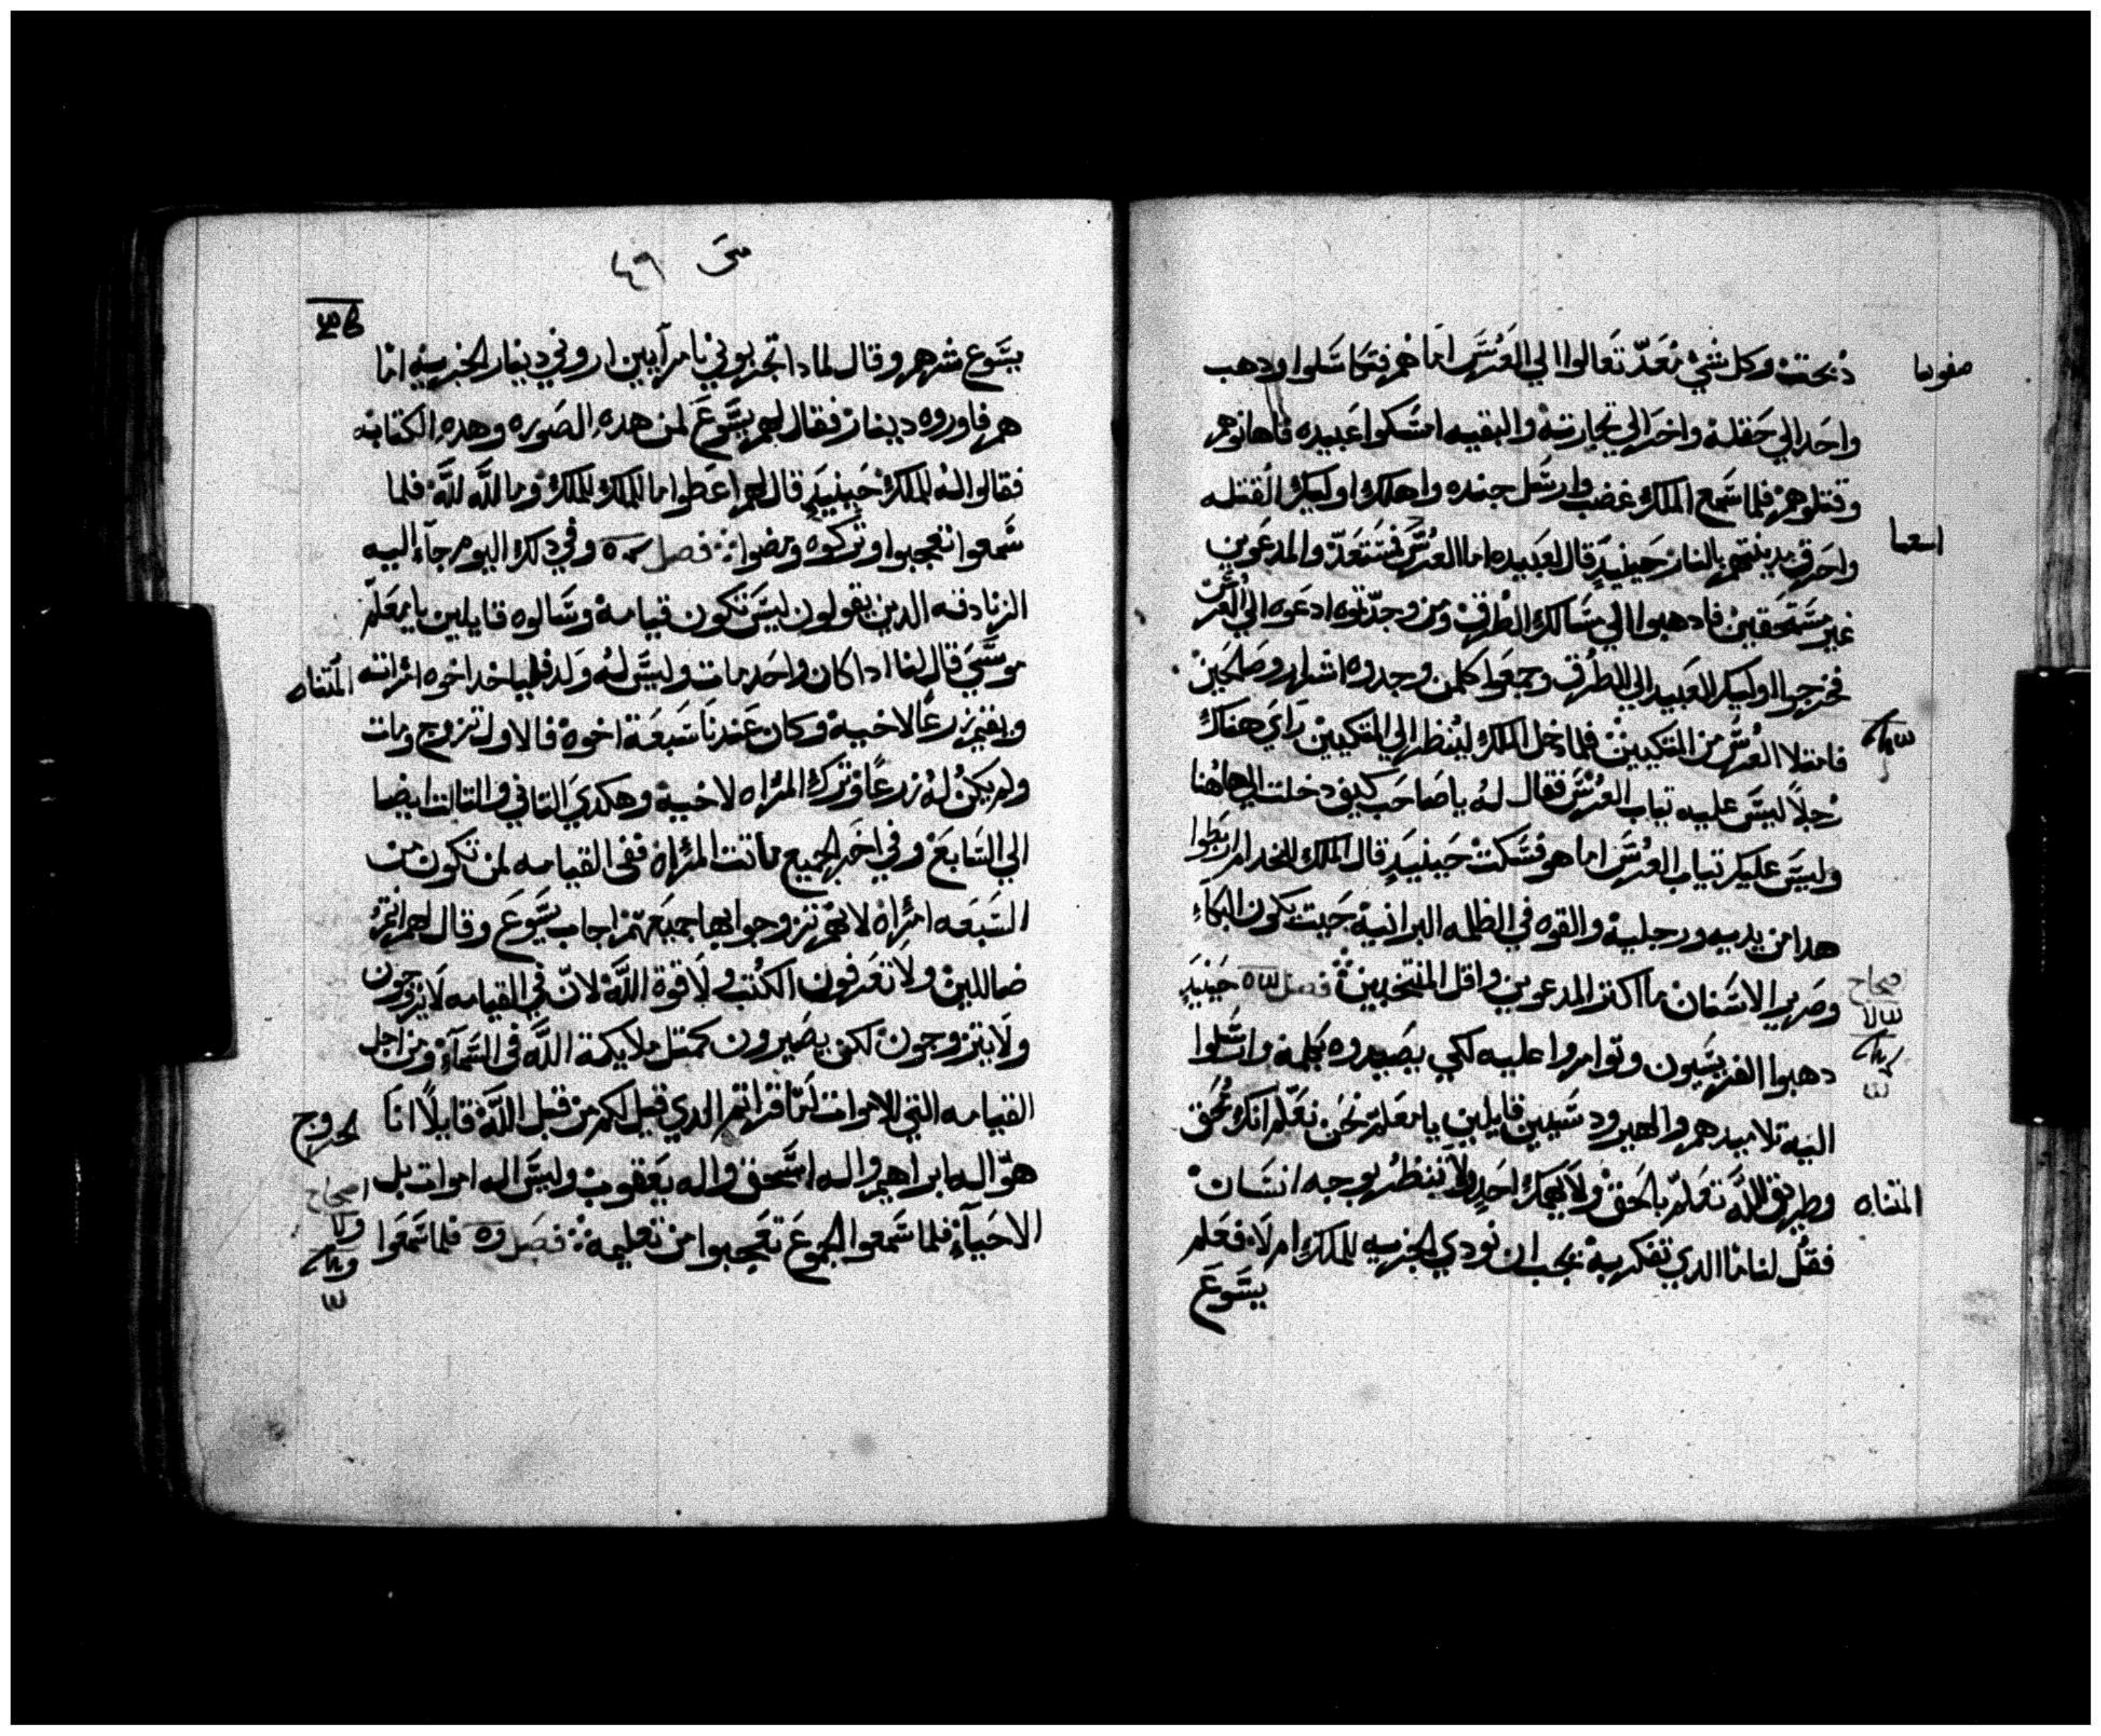 دبحت وكل شي معد تعالوا الي العرس اما هم فتكاسلوا ودهب
صفونيا
واحد الي حقله واخر الي تجارته والبقيه امسكوا عبيده فاهانوهم
وقتلوهم فلما سمع الملك غضب وارسل جنده واهلك اوليك القتله
اسعيا
واحرق مدينتهم بالنار حينيد قال لعبيده اما العرس فمستعد والمدعوين
غير مستحقين فادهبوا الي مسالك الطرق ومن وجدتوه ادعوه الي العرس
فخرجوا اوليك العبيد الي الطرق وجمعوا كلمن وجدوه اشرار وصالحين
فامتلا العرس من المتكيين فلما دخل الملك لينظر الي المتكيين راي هناك
رجلاً ليس عليه تياب العرس فقال له ياصاحب كيف دخلت الي هاهنا
وليس عليك تياب العرس اما هو فسكت حينيد قال الملك للخدام اربطوا
هدا من يديه ورجليه والقوه في الظلمه البرانية حيت يكون البكاء
وصرير الاسنان ما اكتر المدعوين واقل المنتخبين فصل حينيد
صحاح
دهبوا الفريسيون وتوامروا عليه لكي يصيدوه بكلمه وارسلوا
اليه تلاميدهم والهيرودسيين قايلين يامعلم نحن نعلم انك محق
وطريق الله تعلم بالحق ولا يهمك احد ولا تنظر بوجه انسان
المتناه
فقل لنا ما الدي تفكر به يجب ان نودي الجزيه للملك ام لا فعلم
يسوع
متى ٤٦
يسوع شرهم وقال لمادا تجربوني يامرآيين اروني دينار الجزيه اما
هم فاوروه دينار فقال لهم يسوع لمن هده الصوره وهده الكتابه
فقالوا له للملك حينيد قال لهم اعطوا ما للملك للملك وما لله لله فلما
سمعوا تعجبوا وتركوه ومضوا فصل وفي دلك اليوم جآء اليه
الزنادقه الدين يقولون ليس تكون قيامه وسالوه قايلين يامعلم
موسى قال لنا ادا كان واحد مات وليس له ولد فلياخد اخوه امراته
المتناه
ويقيم زرعاً لاخيه وكان عندنا سبعة اخوه فالاول تزوج ومات
ولم يكن له زرعاً وترك المراه لاخيه وهكدي التاني والتالت ايضا
الي السابع وفي اخر الجميع ماتت المراه ففي القيامه لمن تكون من
السبعه امراه لانهم تزوجوا بها جميعهم اجاب يسوع وقال لهم انتم
ضاللين ولا تعرفون الكتب ولا قوة الله لان في القيامه لا يزوجون
ولا يتزوجون لكن يصيرون كمتل ملايكة الله في السمآء ومن اجل
القيامه التي للاموات اما قراتم الدي قيل لكم من قبل الله قايلاً انا
الخروج
هو اله ابراهيم واله اسحق واله يعقوب وليس اله اموات بل
اصحاح
الاحيآء فلما سمعوا الجموع تعجبوا من تعليمه فصل فلما سمعوا